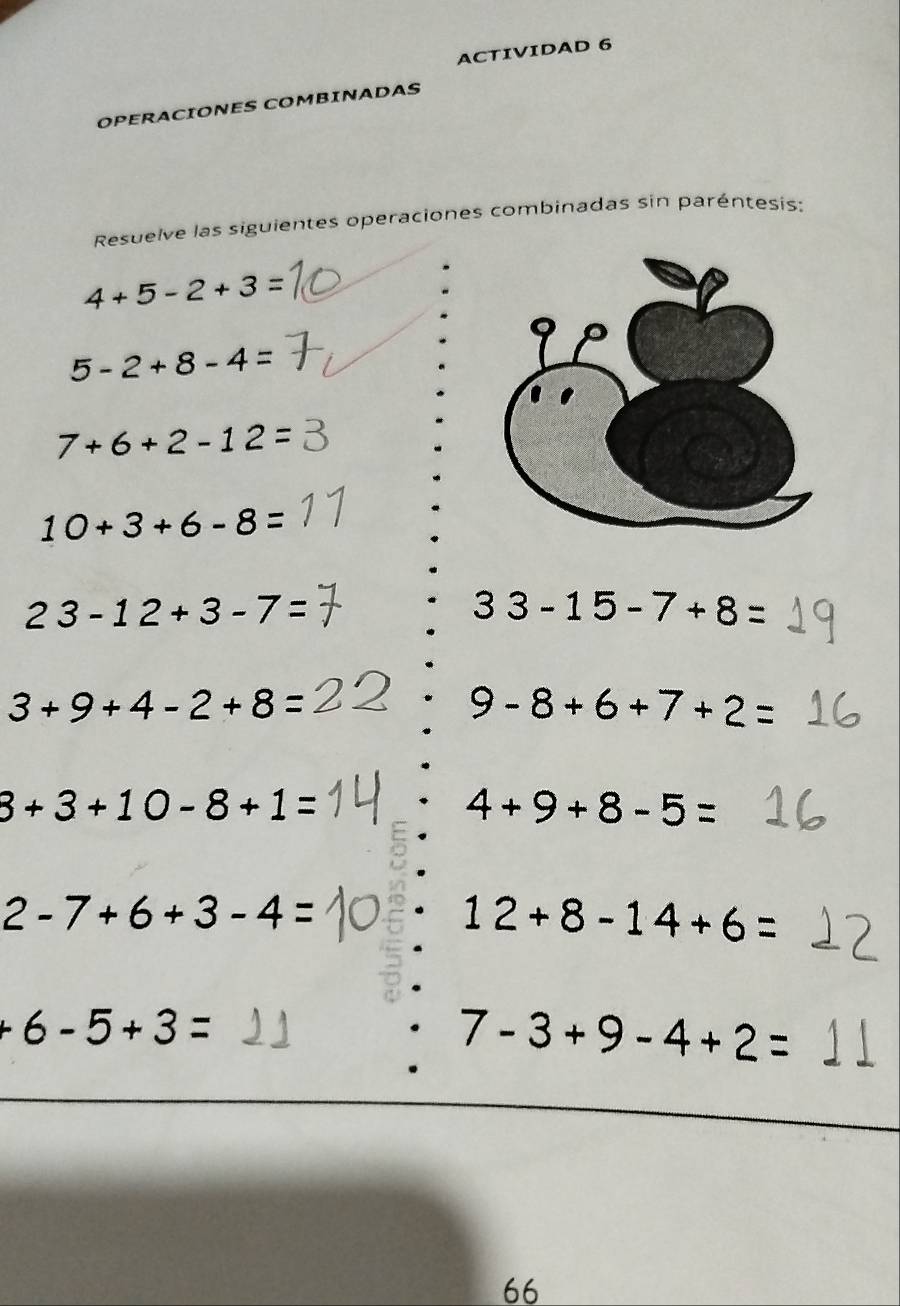 ACTIVIDAD 6
OPERACIONES COMBINADAS
Resuelve las siguientes operaciones combinadas sin paréntesis:
4+5-2+3=10
5-2+8-4=7
7+6+2-12=3
10+3+6-8=11
23-12+3-7=7
3+9+4-2+8=22
3+10-8+1=14
2-7+6+3-4=10
+6-5+3=11
edufichas.com
33-15-7+8=19
9-8+6+7+2=16
4+9+8-5=16
12+8-14+6=12
7-3+9-4+2=11
66